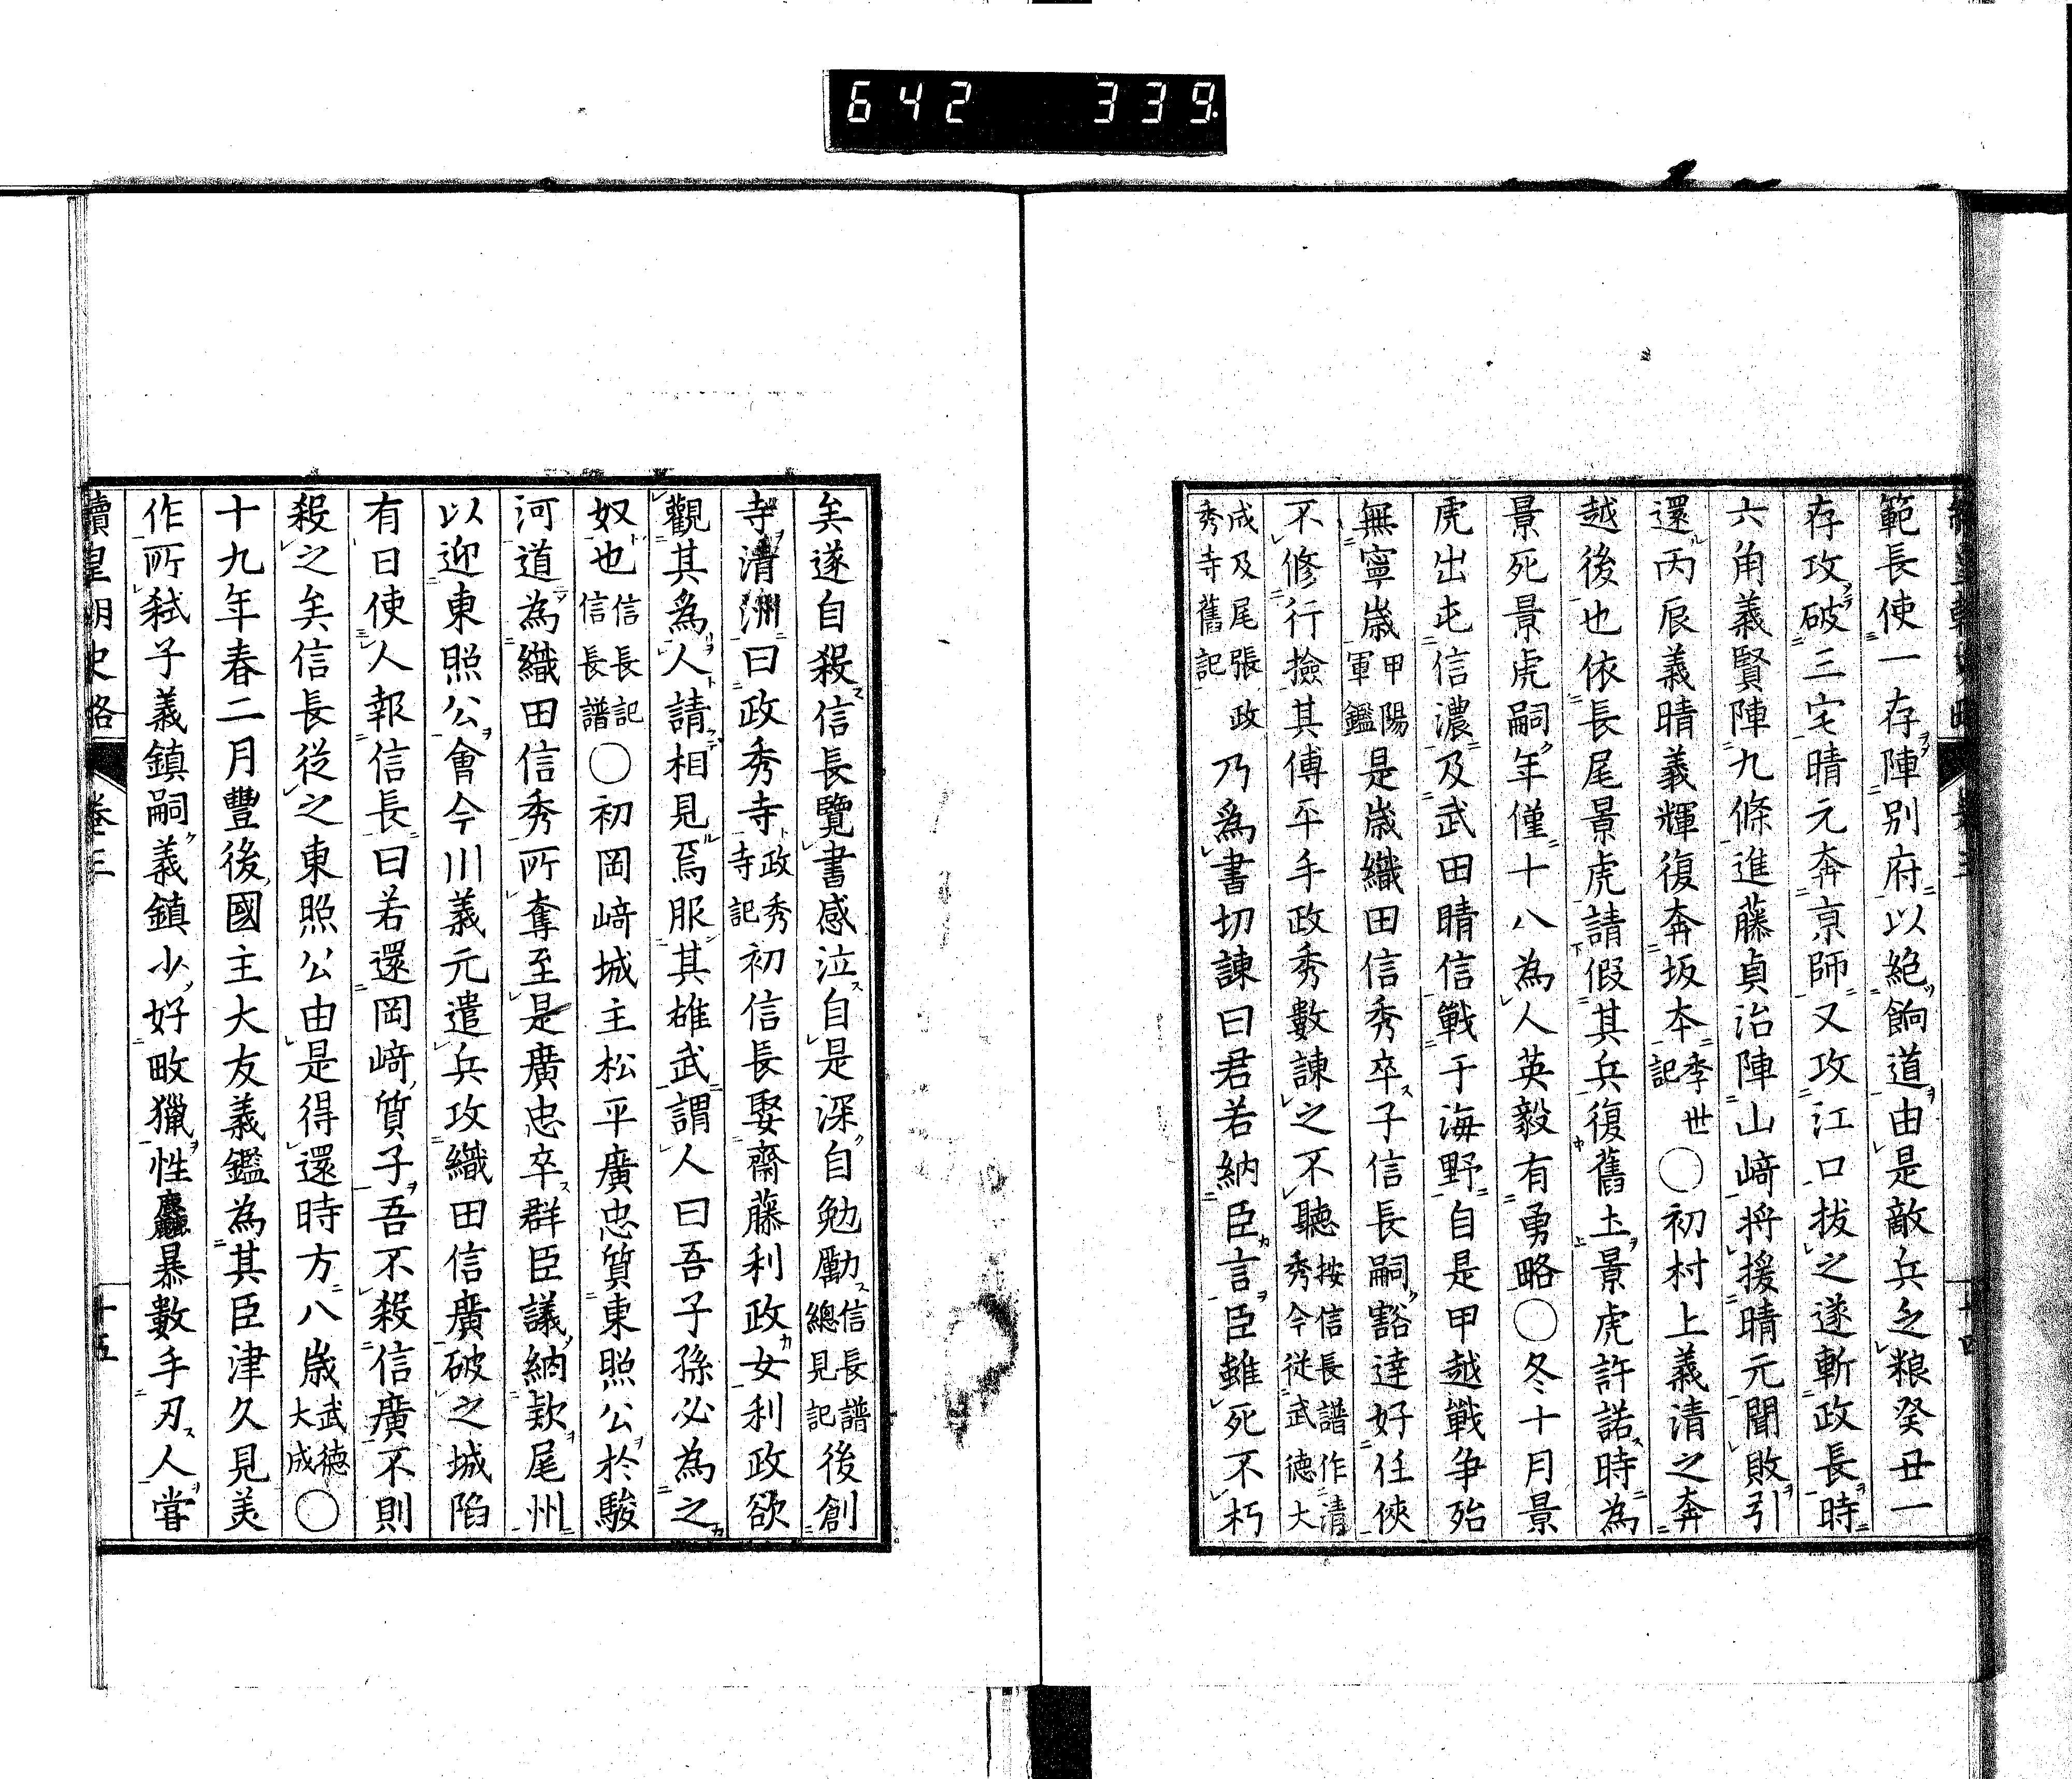 642 339
範長使一存陣別府以絶餉道由是敵兵乏粮癸丑一
存攻破三宅晴元奔亰師又攻江口拔之遂斬政長時
六角義賢陣九條進藤貞治陣山﨑將援晴元聞敗引
還丙辰義晴義輝復奔坂本李世記〇初村上義清之奔
越後也依長尾景虎請假其兵復舊土景虎許諾時為
景死景虎嗣年僅十八為人英毅有勇略〇冬十月景
虎出屯信濃及武田晴信戰于海野自是甲越戰争殆
無寧歳甲陽軍鑑是歳織田信秀卒子信長嗣豁達好任俠
不修行撿其傅平手政秀數諌之不聽按信長譜作清秀今從武德大
成及尾張政秀寺舊記乃爲書切諌曰君若納臣言臣雖死不朽
矣遂自殺信長覽書感泣自是深自勉勵信長譜總見記後創
寺清洲曰政秀寺政秀寺記初信長娶齋藤利政女利政欲
觀其爲人請相見焉服其雄武謂人曰吾子孫必為之
奴也信長記信長譜〇初岡﨑城主松平廣忠質東照公於駿
河道為織田信秀所奪至是廣忠卒群臣議納欵尾州
以迎東照公會今川義元遣兵攻織田信廣破之城陷
有日使人報信長曰若還岡﨑質子吾不殺信廣不則
殺之矣信長從之東照公由是得還時方八歳武德大成〇
十九年春二月豐後國主大友義鑑為其臣津久見美
作所弑子義鎮嗣義鎮少好畋獵性麤暴數手刃人嘗
續皇朝史略 卷三 十五